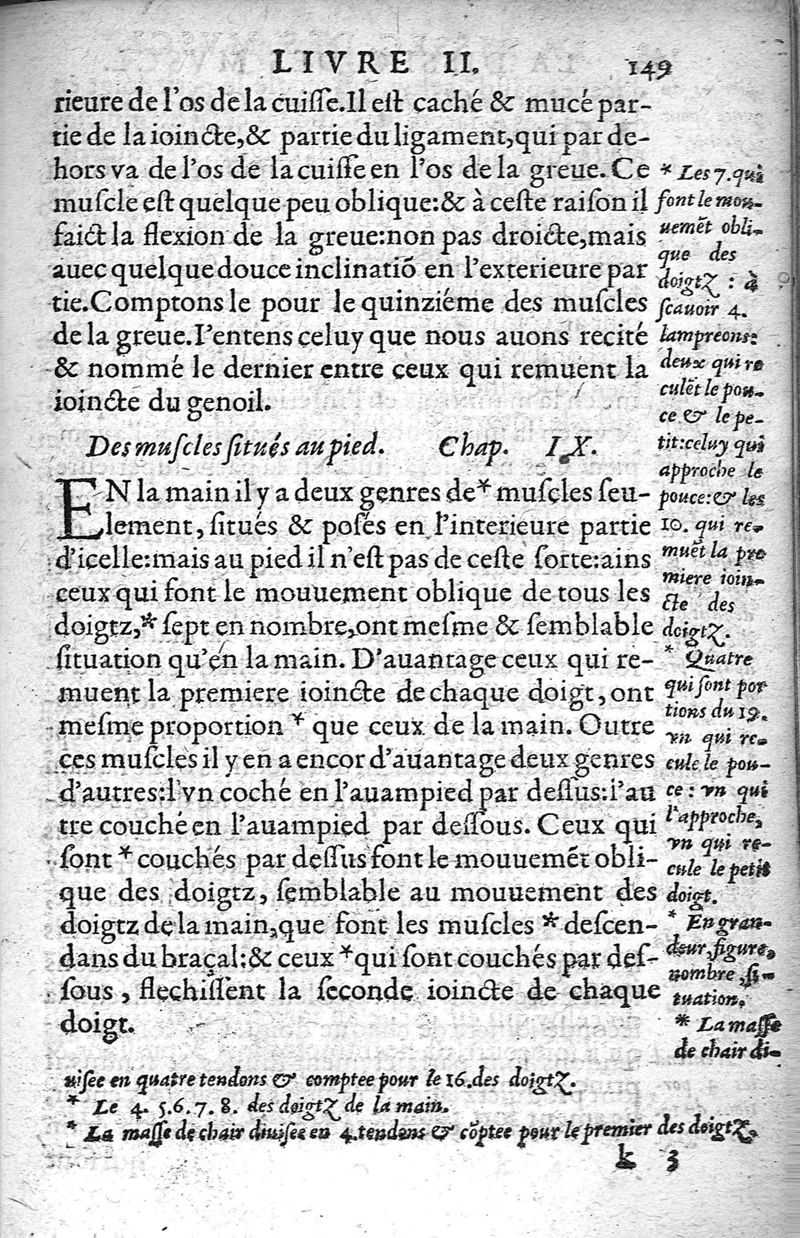 LIVRE II. 149
rieure de l'os de la cuiſſe. Il eſt caché & mucé par-
tie de la ioincte, & partie du ligament, qui par de-
hors va de l'os de la cuiſſe en l'os de la greue. Ce
muſcle eſt quelque peu oblique: & à ceſte raiſon il
faict la flexion de la greue: non pas droicte, mais
auec quelque douce inclinatiõ en l'exterieure par
tie. Comptons le pour le quinziéme des muſcles
de la greue. I'entens celuy que nous auons recité
& nommé le dernier entre ceux qui remuent la
ioincte du genoil.
Des muſcles ſitués au pied. Chap. IX.
EN la main il y a deux genres de * muſcles ſeu-
lement, ſitués & poſés en l'interieure partie
d'icelle: mais au pied il n'eſt pas de ceſte ſorte: ains
ceux qui font le mouuement oblique de tous les
doigtz, * ſept en nombre, ont meſme & ſemblable
ſituation qu'en la main. D'auantage ceux qui re-
muent la premiere ioincte de chaque doigt, ont
meſme proportion * que ceux de la main. Outre
ces muſcles il y en a encor d'auantage deux genres
d'autres: l'vn coché en l'auampied par deſſus: l'au
tre couché en l'auampied par deſſous. Ceux qui
ſont * couchés par deſſus font le mouuemẽt obli-
que des doigtz, ſemblable au mouuement des
doigtz de la main, que font les muſcles * deſcen-
dans du braçal: & ceux * qui ſont couchés par deſ-
ſous, flechiſſent la ſeconde ioincte de chaque
doigt.
* Les 7. qui
font le mou-
uemẽt obli-
que des
doigtz : à
ſcauoir 4.
lampreons:
deux qui re
culẽt le pou-
ce & le pe-
tit: celuy qui
approche le
pouce: & les
10. qui re-
muẽt la pre
miere ioin-
cte des
doigtz.
* Quatre
qui ſont por
tions du 19.
vn qui re-
cule le pou-
ce : vn qui
l'approche,
vn qui re-
cule le petit
doigt.
* En gran-
deur, figure,
nombre, ſi-
tuation.
* La maſſe
de chair di-
uiſee en quatre tendons & comptee pour le 16. des doigtz.
* Le 4. 5. 6. 7. 8. des doigtz de la main.
* La maſſe de chair diuiſee en 4. tendons & cõptee pour le premier des doigtz.
k 3